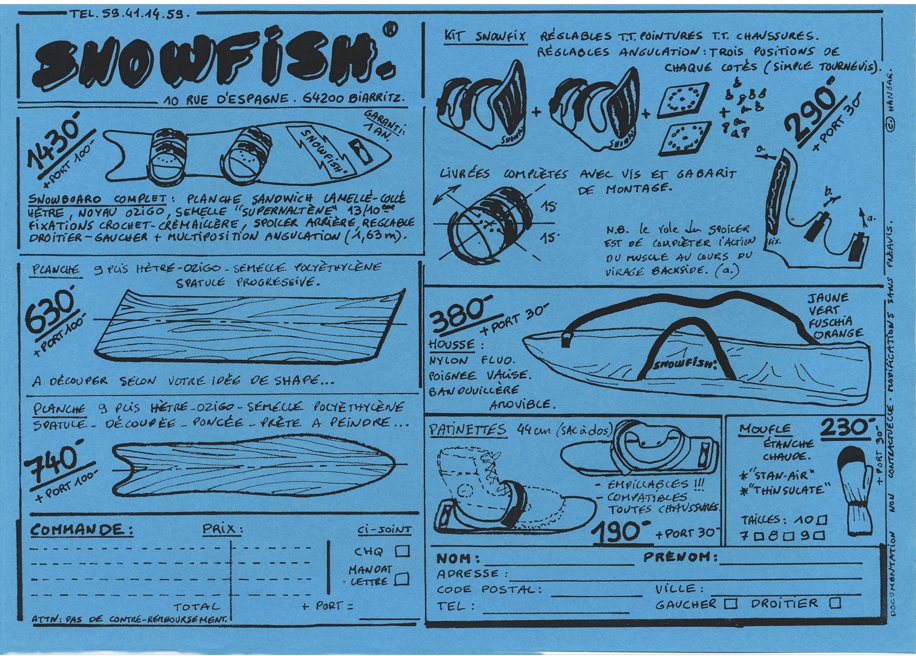 TEL. 59.41.14.59.
SNOWFISH.®
10 RUE D'ESPAGNE. 64200 BIARRITZ.
1430-
+ PORT 100-
GARANTI:
1 AN.
SNOWFISH.
SNOWBOARD COMPLET: PLANCHE SANDWICH LAMELLÉ-COLLÉ
HÊTRE, NOYAU OZIGO, SEMELLE "SUPERNALTÈNE" 13/10ème
FIXATIONS CROCHET-CRÉMAILLÈRE, SPOILER ARRIÈRE, REGLABLE
DROITIER-GAUCHER + MULTIPOSITION ANGULATION (1,63m).
PLANCHE 9 PLIS HÊTRE-OZIGO-SEMELLE POLYÉTHYLÈNE
SPATULE PROGRESSIVE.
630-
+ PORT 100-
A DÉCOUPER SELON VOTRE IDÉE DE SHAPE...
PLANCHE 9 PLIS HÊTRE-OZIGO-SEMELLE POLYÉTHYLÈNE
SPATULE - DÉCOUPÉE - PONCÉE - PRÊTE A PEINDRE...
740-
+ PORT 100-
COMMANDE: PRIX: CI-JOINT
CHQ
MANDAT
LETTRE
TOTAL + PORT =
ATTN: PAS DE CONTRE-REMBOURSEMENT.
KIT SNOWFIX RÉGLABLES T.T. POINTURES T.T. CHAUSSURES.
RÉGLABLES ANGULATION: TROIS POSITIONS DE
CHAQUE COTÉS (SIMPLE TOURNEVIS).
290-
+ PORT 30-
LIVRÉES COMPLÈTES AVEC VIS ET GABARIT
DE MONTAGE.
15°
15°
N.B. le role du SPOILER
EST DE COMPLÉTER L'ACTION
DU MUSCLE AU COURS DU
VIRAGE BACKSIDE. (a.)
a.
b.
a.
fix.
380-
+ PORT 30-
HOUSSE:
NYLON FLUO.
POIGNEE VALISE.
BANDOUILLÈRE
AMOVIBLE.
SNOWFISH.
JAUNE
VERT
FUSCHIA
ORANGE
PATINETTES 44cm (SAC à DOS)
- EMPILLABLES !!!
- COMPATIBLES
TOUTES CHAUSSURES.
190- + PORT 30-
MOUFLE 230-
+ PORT 30-
ÉTANCHE
CHAUDE.
* "STAN-AIR"
* "THINSULATE"
TAILLES: 10
7 8 9
NOM: PRÉNOM:
ADRESSE:
CODE POSTAL: VILLE:
TEL: GAUCHER DROITIER
DOCUMENTATION NON CONTRACTUELLE - MODIFICATIONS SANS PRÉAVIS.
© HANGAR.